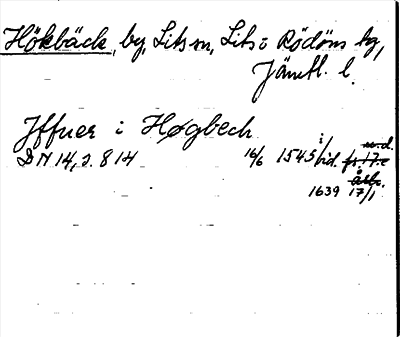 Hökbäck, by, Lits sn, Lits o Rödöns tg,
Jämtl. l.
Jffuer i Høgbech
DN 14, s. 814 16/6 1545 i hd.
1639 17/1